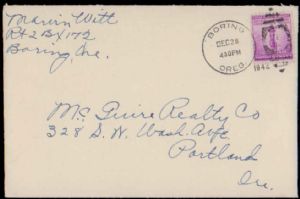 Marion Witt
Rt 2 Bx 172
Boring, Ore.
BORING
DEC 28
430PM
OREG.
1942
Mc Guire Realty Co
328 S. W. Wash. Ave
Portland
Ore.